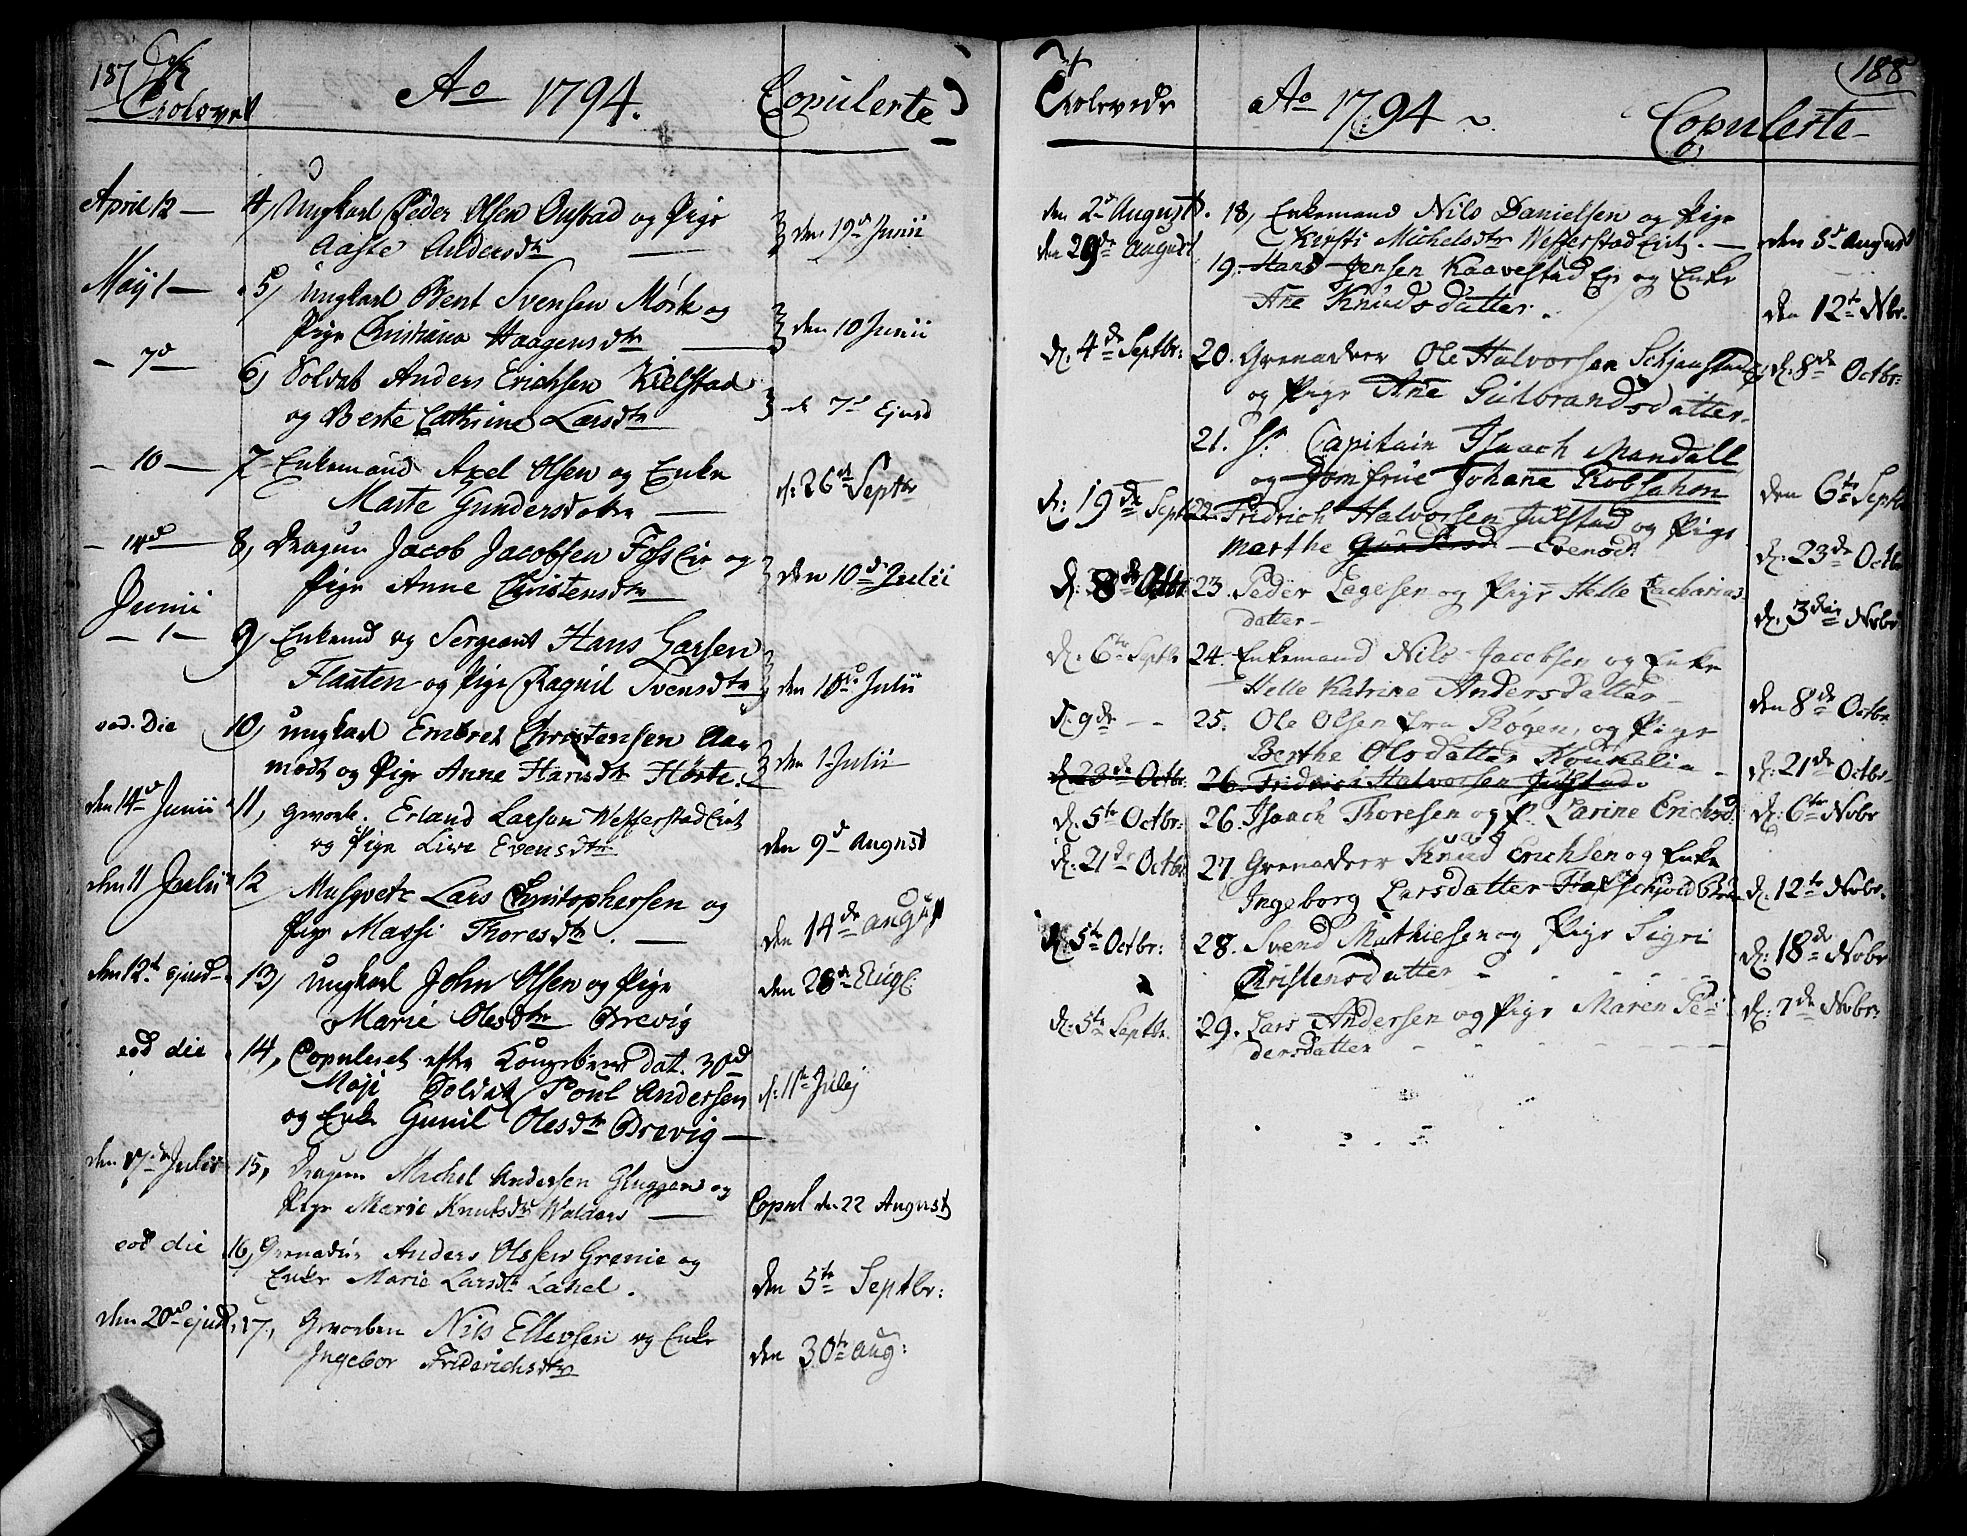 187
Trolovet
Ao 1794.
Copulerte
April 12 —
4, Ungkarl Peder Olsen Onstad og Pige
Aaste Andersdtr —
den 19d Junii
Maÿ 1 —
5, Ungkarl Bent Svensen Mørk og
Pige Christiana Haagensdtr —
den 10 Junii
— 7d —
6, Soldat Anders Erichsen Kielstad
og Berte Cathrine Larsdtr
7d Ejusd
— 10 —
7 Enkemand Axel Olsen og Enke
Marte Gundersdotter —
d: 26de Septbr
— 14d —
8, Dragun Jacob Jacobsen Foss Eie og
Pige Anne Christensdtr
den 10d Julii
Junii
— 1 —
9, Enkemd og Sergeant Hans Larsen
Flaaten og Pige Ragnil Svensdtr
den 10de Julii
eod. Die
10, Ungkarl Embret Christensen Aa-
modt og Pige Anne Hansdtr Hørte.
den 1 Julii
den 14d Junii
11, Gevorb. Erland Larson Wefferstad Eiet
og Pige Live Evensdtr
den 9d August
den 11 Julii
12 Musqvetr Lars Christophersen og
Pige Massi Thoresdtr. —
den 14de August
den 12t ejusd
13, Ungkarl John Olsen og Pige
Marie Olesdtr Drevig
den 28de Aug:
eod die
14, Copuleret efter Kongebrev dat. 30d
Maji Soldat Poul Andersen
og Enke Gunil Olesdtr Drevig —
d: 11te Julij
den 17de Julii
15, Dragun Michel Andersen Gluggen og
Pige Marie Knutsdtr Walders —
Copul den 22 August
eod die
16, Grenadier Anders Olssen Grenie og
Enke Marie Larsdtr Lahel.
den 5te Septbr:
den 20de ejusd.
17, Gevorben Nils Ellevsen og Enke
Ingebor Friderichsdtr
den 30te Aug:
188
Trolovede
Ao 1794
Copulerte
den 2d August.
18, Enkemand Nils Danielsen og Pige
Kirsti Michelsdtr Wefferstad Eiet. —
den 5d August
den 29de August
19. Hans Jensen Kaavestad Eje og Enke
Ane Knudsdatter.
den 12te Nbr.
d: 4de Septbr:
20. Grenadeer Ole Halvorsen Schjønstad
og Pige Ane Gulbrandsdatter.
d: 8de Octbr:
21. Hr Capitain Isaach Mandall
og Jomfrue Johane Robsahm
den 6te Septbr
d: 19de Septbr
22. Fridrich Halvorsen Julstad og Pige
Marthe Gundersd — Evensdt
d: 23de Octbr
d: 8de Octbr
23. Peder Lagesen og Pige Helle Zacharias
datter —
d: 3die Nobr
d: 6te Septbr
24. Enkemand Nils Jacobsen og Enke
Helle Katrine Andersdatter
den 8de Octbr
d: 9de — —
25. Ole Olsen fra Røgen, og Pige
Berthe Olsdatter
d: 21de Octbr
d: 23de Octbr.
26. Friderich Halvorsen Julstad.
d: 5te Octbr:
26. Isaach Thoresen og P. Karine Erichsd.
d: 6te Nobr
d: 21de Octbr
27. Grenadeer Knud Erichsen og Enke
Ingeborg Larsdatter
d: 12te Nobr.
d: 5te Octbr:
28. Svend Mathiesen og Pige Sigri
Christensdatter
d: 18de Nobr
d: 5te Septbr.
29. Lars Andersen og Pige Maren Pe-
dersdatter
d: 7de Nobr: